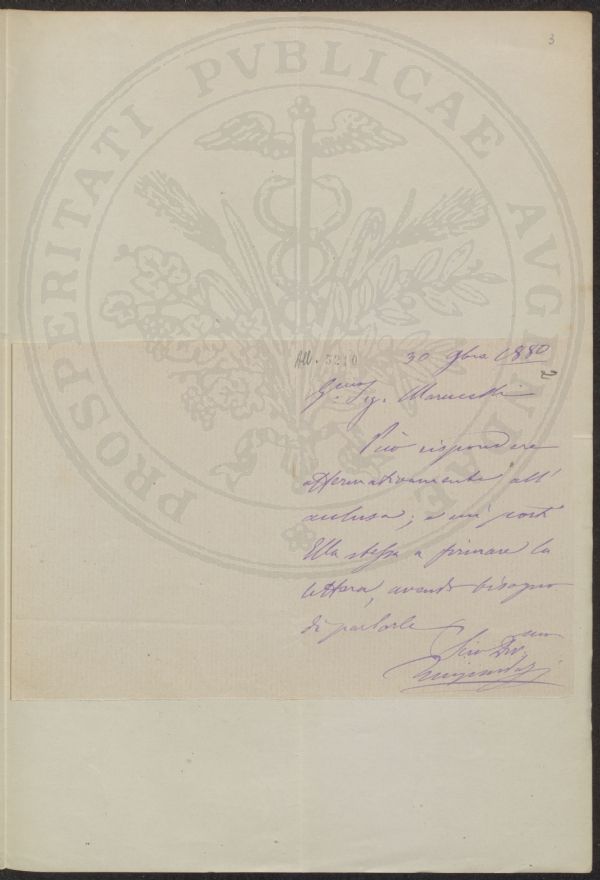 3
PROSPERITATI PVBLICAE AVGENDAE
All. 5210
30 9bre 1880
2
G.mo Sig. Marucchi
Può rispondere
affermativamente all'
acclusa; e mi porti
Ella stessa a firmare la
lettera, avendo bisogno
di parlarle
Suo Dev.mo